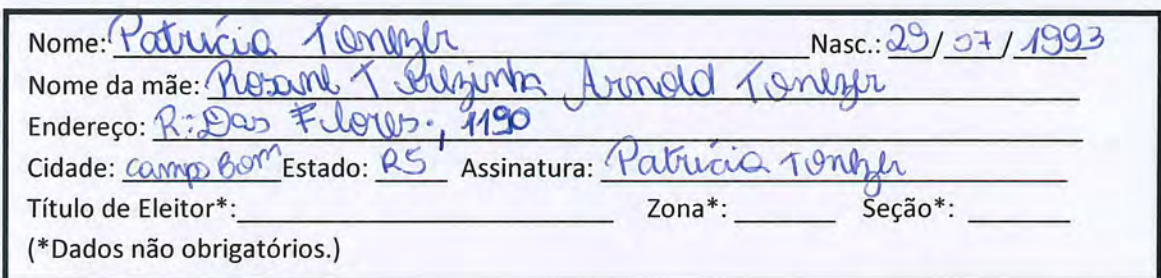 Nome: Patrícia Tonezer Nasc.: 29/07/1993
Nome da mãe: Rosane T Arnold Tonezer
Endereço: R: Das Flores., 1190
Cidade: campo Bom Estado: RS Assinatura: Patrícia Tonezer
Título de Eleitor*:__________ Zona*: ______ Seção*: ______
(*Dados não obrigatórios.)